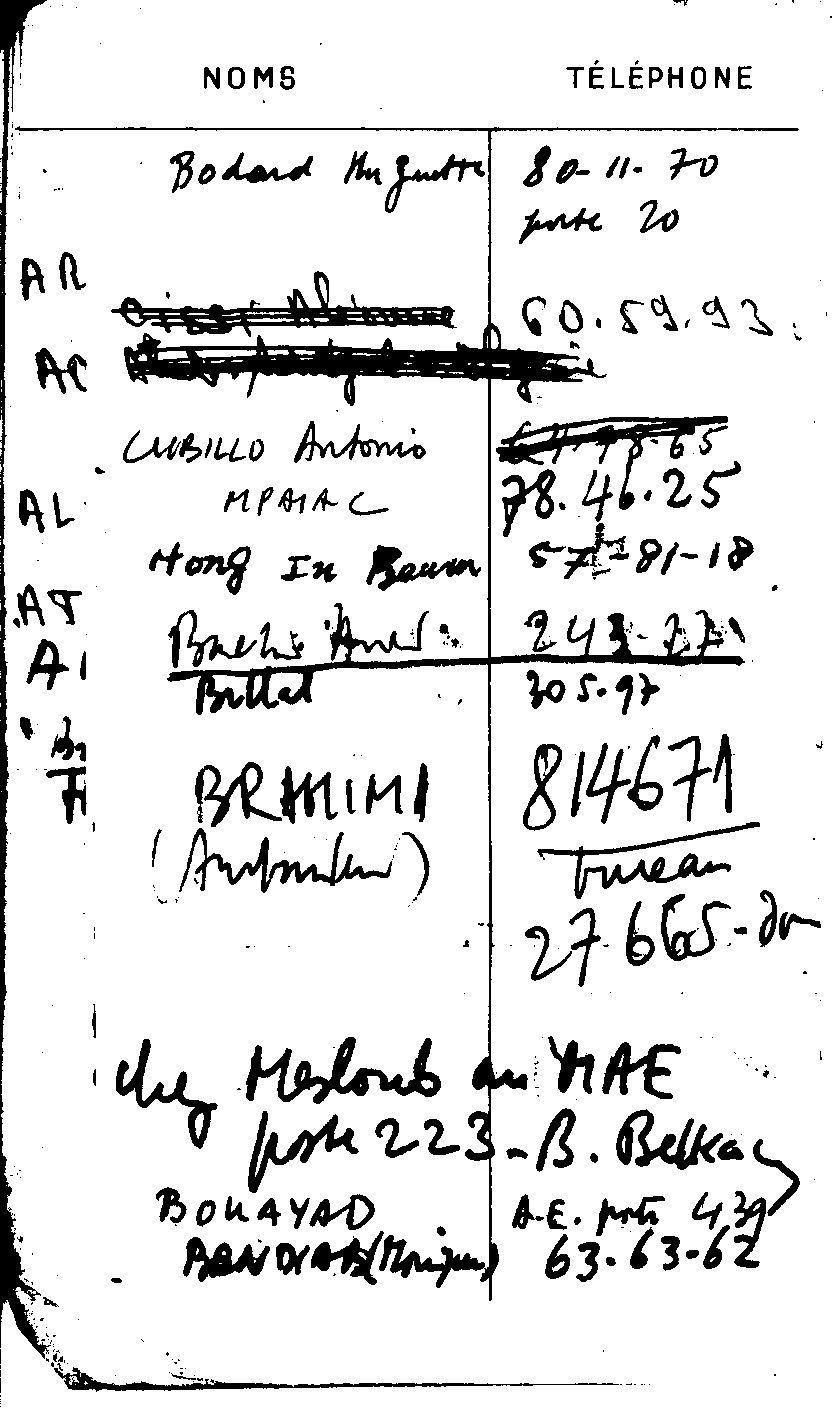 NOMS TÉLÉPHONE
Bodard Huguette 80-11-70
poste 20
AR
60.59.93
AC
CUBILLO Antonio 65
MPAIAC 78.46.25
AL
Hong In 57-81-18
AT
243-77
AI
Bittat 305.97
BRAHIMI 814671
bureau
27665-
chez Mesloub au MAE
poste 223-B. Belkac
BOUAYAD A.E. poste 439
BENDIAB (Monique) 63.63-62